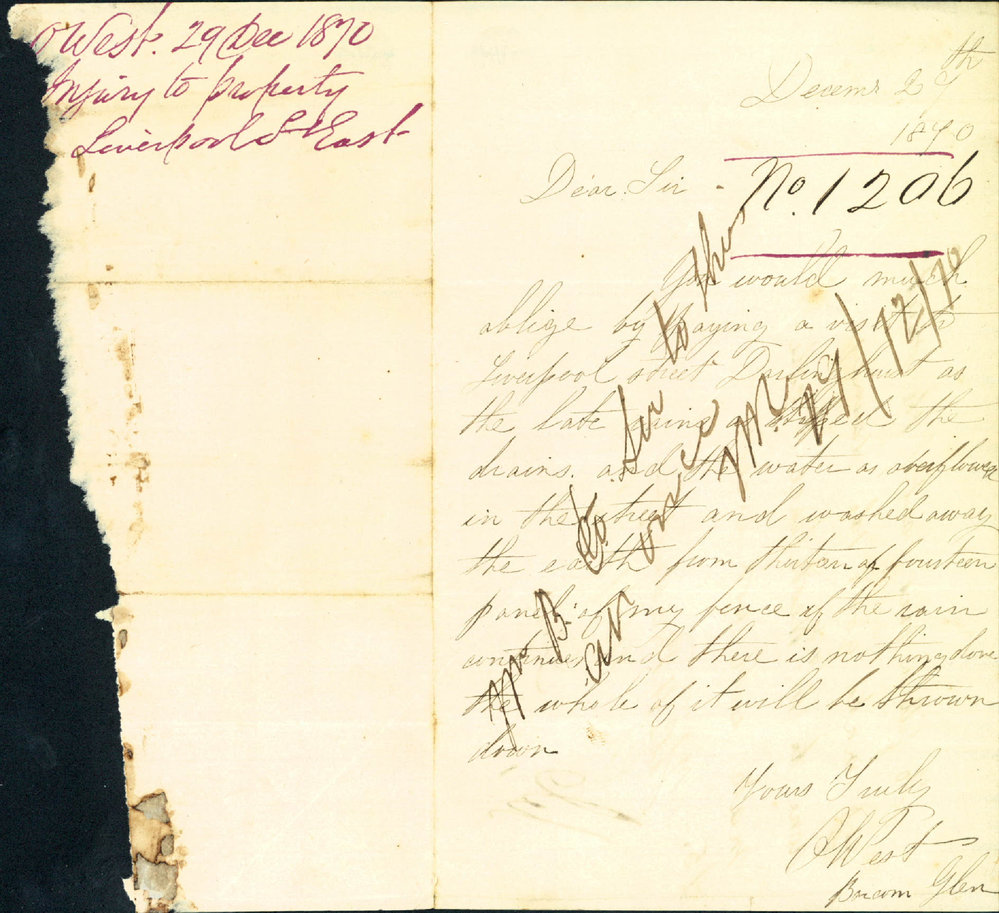 O West. 29 Dec 1870
Injury to property
Liverpool St East
Decemr 29th
1870
Dear Sir -
No. 1206
You would much
oblige by paying a visit to
Liverpool street Darlinghurst as
the late rains stopped the
drains. and the water as overflowed
in the street and washed away
the earth from thirteen of fourteen
panels of my fence if the rain
continues and there is nothing done
the whole of it will be thrown
down
Yours Truly
O West
Barcom Glen
Mr B. to see to this
at once
/12/70